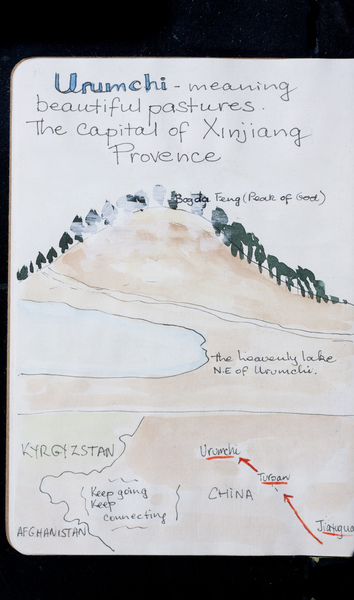 Urumchi - meaning
beautiful pastures.
The Capital of Xinjiang
Provence
Bogda Feng (Peak of God)
the heavenly lake
N.E of Urumchi.
KYRGYZSTAN
Urumchi
Turpan
Keep going
Keep
connecting
CHINA
Jiaugua
AFGHANISTAN